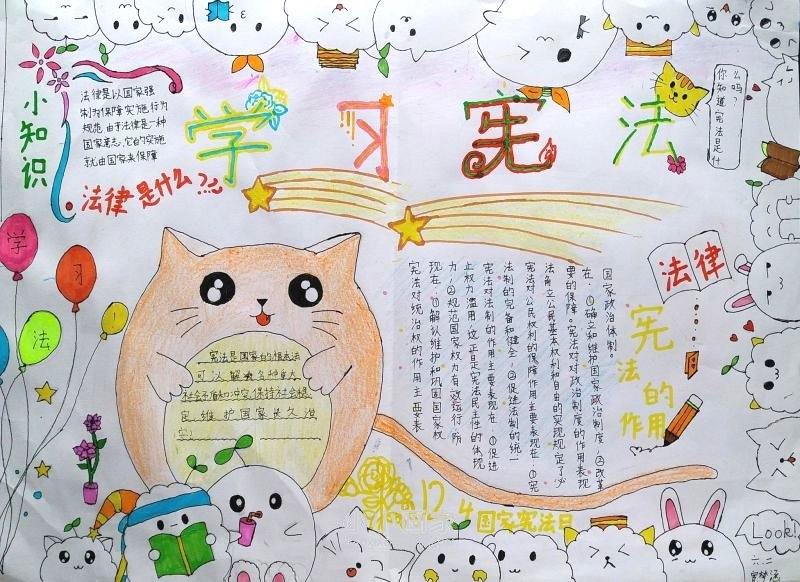 学习宪法
小知识
法律是以国家强
制为保障实施,行为
规范.由于法律是一种
国家意志,它的实施
就由国家来保障
法律是什么?
你知道宪法是什
么吗?
学
习
法
!
宪法是国家的根本法
可以解各种重大
社会矛盾和冲突,保持社会稳
定,维护国家长久治
安!
宪法对统治权的作用主要表
现在:①解认维护和巩固国家权
力;②规范国家权力有效运行,防
止权力滥用.这正是宪法民主性的体现
宪法对法制的作用主要表现在:①促进
法制的完备和健全;②促进法制的统一
宪法对公民权利的保障作用主要表现在:①宪
法角立公民基本权利和自由的实现规定了必
要的保障。宪法对对政治制度的作用表现
在:①确立和维护国家政治制度,②改革
国家政治体制。
法律
宪法的作用
12 4国家宪法日
Look!
六.二